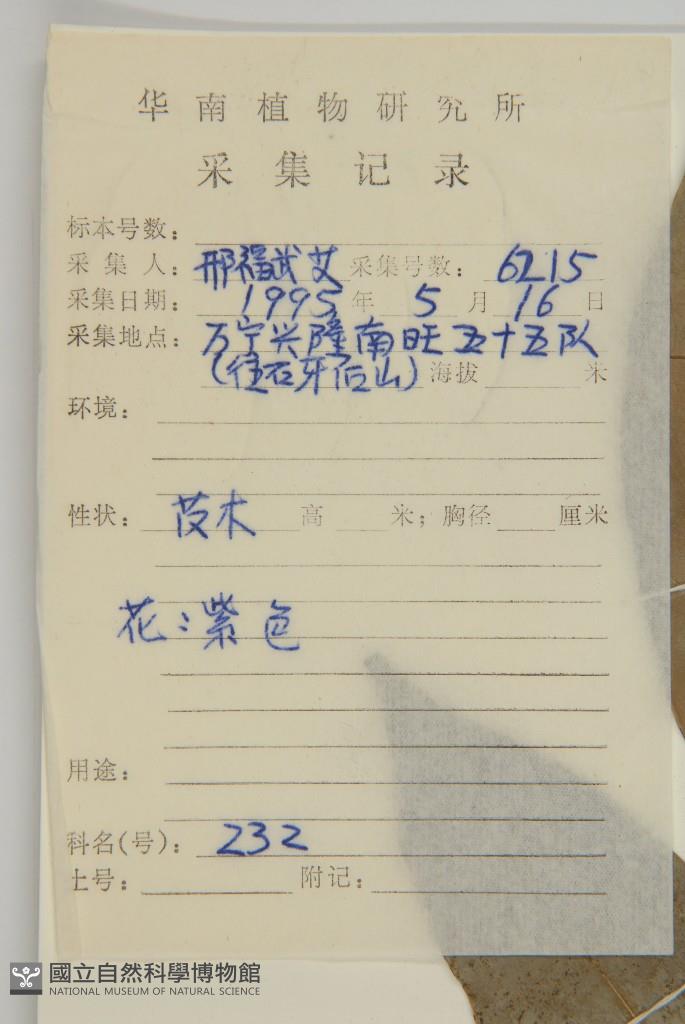 华南植物研究所
采集记录
标本号数：
采集人：邢福武 艾 采集号数：6215
采集日期：1995年5月16日
采集地点：万宁兴隆南旺五十五队
（往石牙后山）海拔 米
环境：
性状：木 高 米；胸径 厘米
花：紫色
用途：
科名(号)：232
土号： 附记：
國立自然科學博物館
NATIONAL MUSEUM OF NATURAL SCIENCE